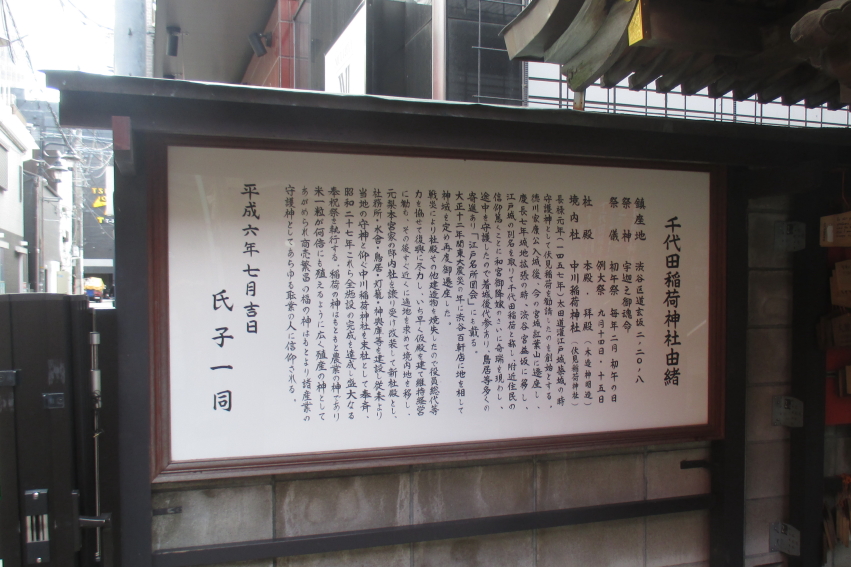 千代田稲荷神社由緒
鎮座地 渋谷区道玄坂二ノ二〇ノ八
祭神 宇迦之御魂命
祭儀 初午祭 毎年二月 初午の日
例大祭 九月十四日・十五日
社殿 本殿・拝殿（木造神明造）
境内社 中川稲荷神社（伏見稲荷神社）
長禄元年（一四五七年）太田道灌江戸城築城の時
守護神として伏見稲荷を勧請したのを創始とする。
徳川家康公入城後、今の宮城紅葉山に遷座し、
慶長七年城地拡張の時、渋谷宮益坂に移し、
江戸城の別名を取りて千代田稲荷と称し、附近住民の
信仰篤くことに和宮御降嫁のさいに奇瑞を現わし、
途中を守護したので着城後代参あり、鳥居等多くの
寄進あり「江戸名所図会」にも載る。
大正十二年関東大震災の年に渋谷百軒店に地を相して
神域を定め再度御遷座した。
戦災により社殿その他建造物を焼失したので役員総代等
力を協せ復興に尽力し、いち早く仮殿を建て維持経営
に勤め、その後すぐ近くに適地を求めて境内地を移し、
元梨本宮家の邸内社を譲り受け改装して新社殿とし、
社務所・水舎・鳥居・灯籠・神輿庫等を建設し従来より
当地の守神と仰ぐ中川稲荷神社を末社として奉斉、
昭和二十七年これが全施設の完成を達成し盛大なる
奉祝祭を執行する。稲荷の神はもともと農業の神であり
米一粒が何倍にも殖えるように広く殖産の神として
あがめられ商売繁昌の福の神はもとより諸産業の
守護神としてあらゆる職業の人に信仰される。
平成六年七月吉日
氏子一同